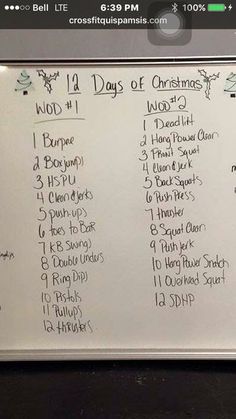 Bell LTE 6:39 PM 100%
crossfitquispamsis.com
12 Days of Christmas
WOD #1
1 Burpee
2 Box jumps
3 HSPU
4 Clean & Jerks
5 push-ups
6 toes to Bar
7 KB Swings
8 Double Unders
9 Ring Dips
10 Pistols
11 Pullups
12 thrusters
WOD #2
1 Deadlift
2 Hang Power Clean
3 Front Squat
4 Clean & Jerk
5 Back Squats
6 Push Press
7 thruster
8 Squat Clean
9 Push jerk
10 Hang Power Snatch
11 Overhead Squat
12 SDHP